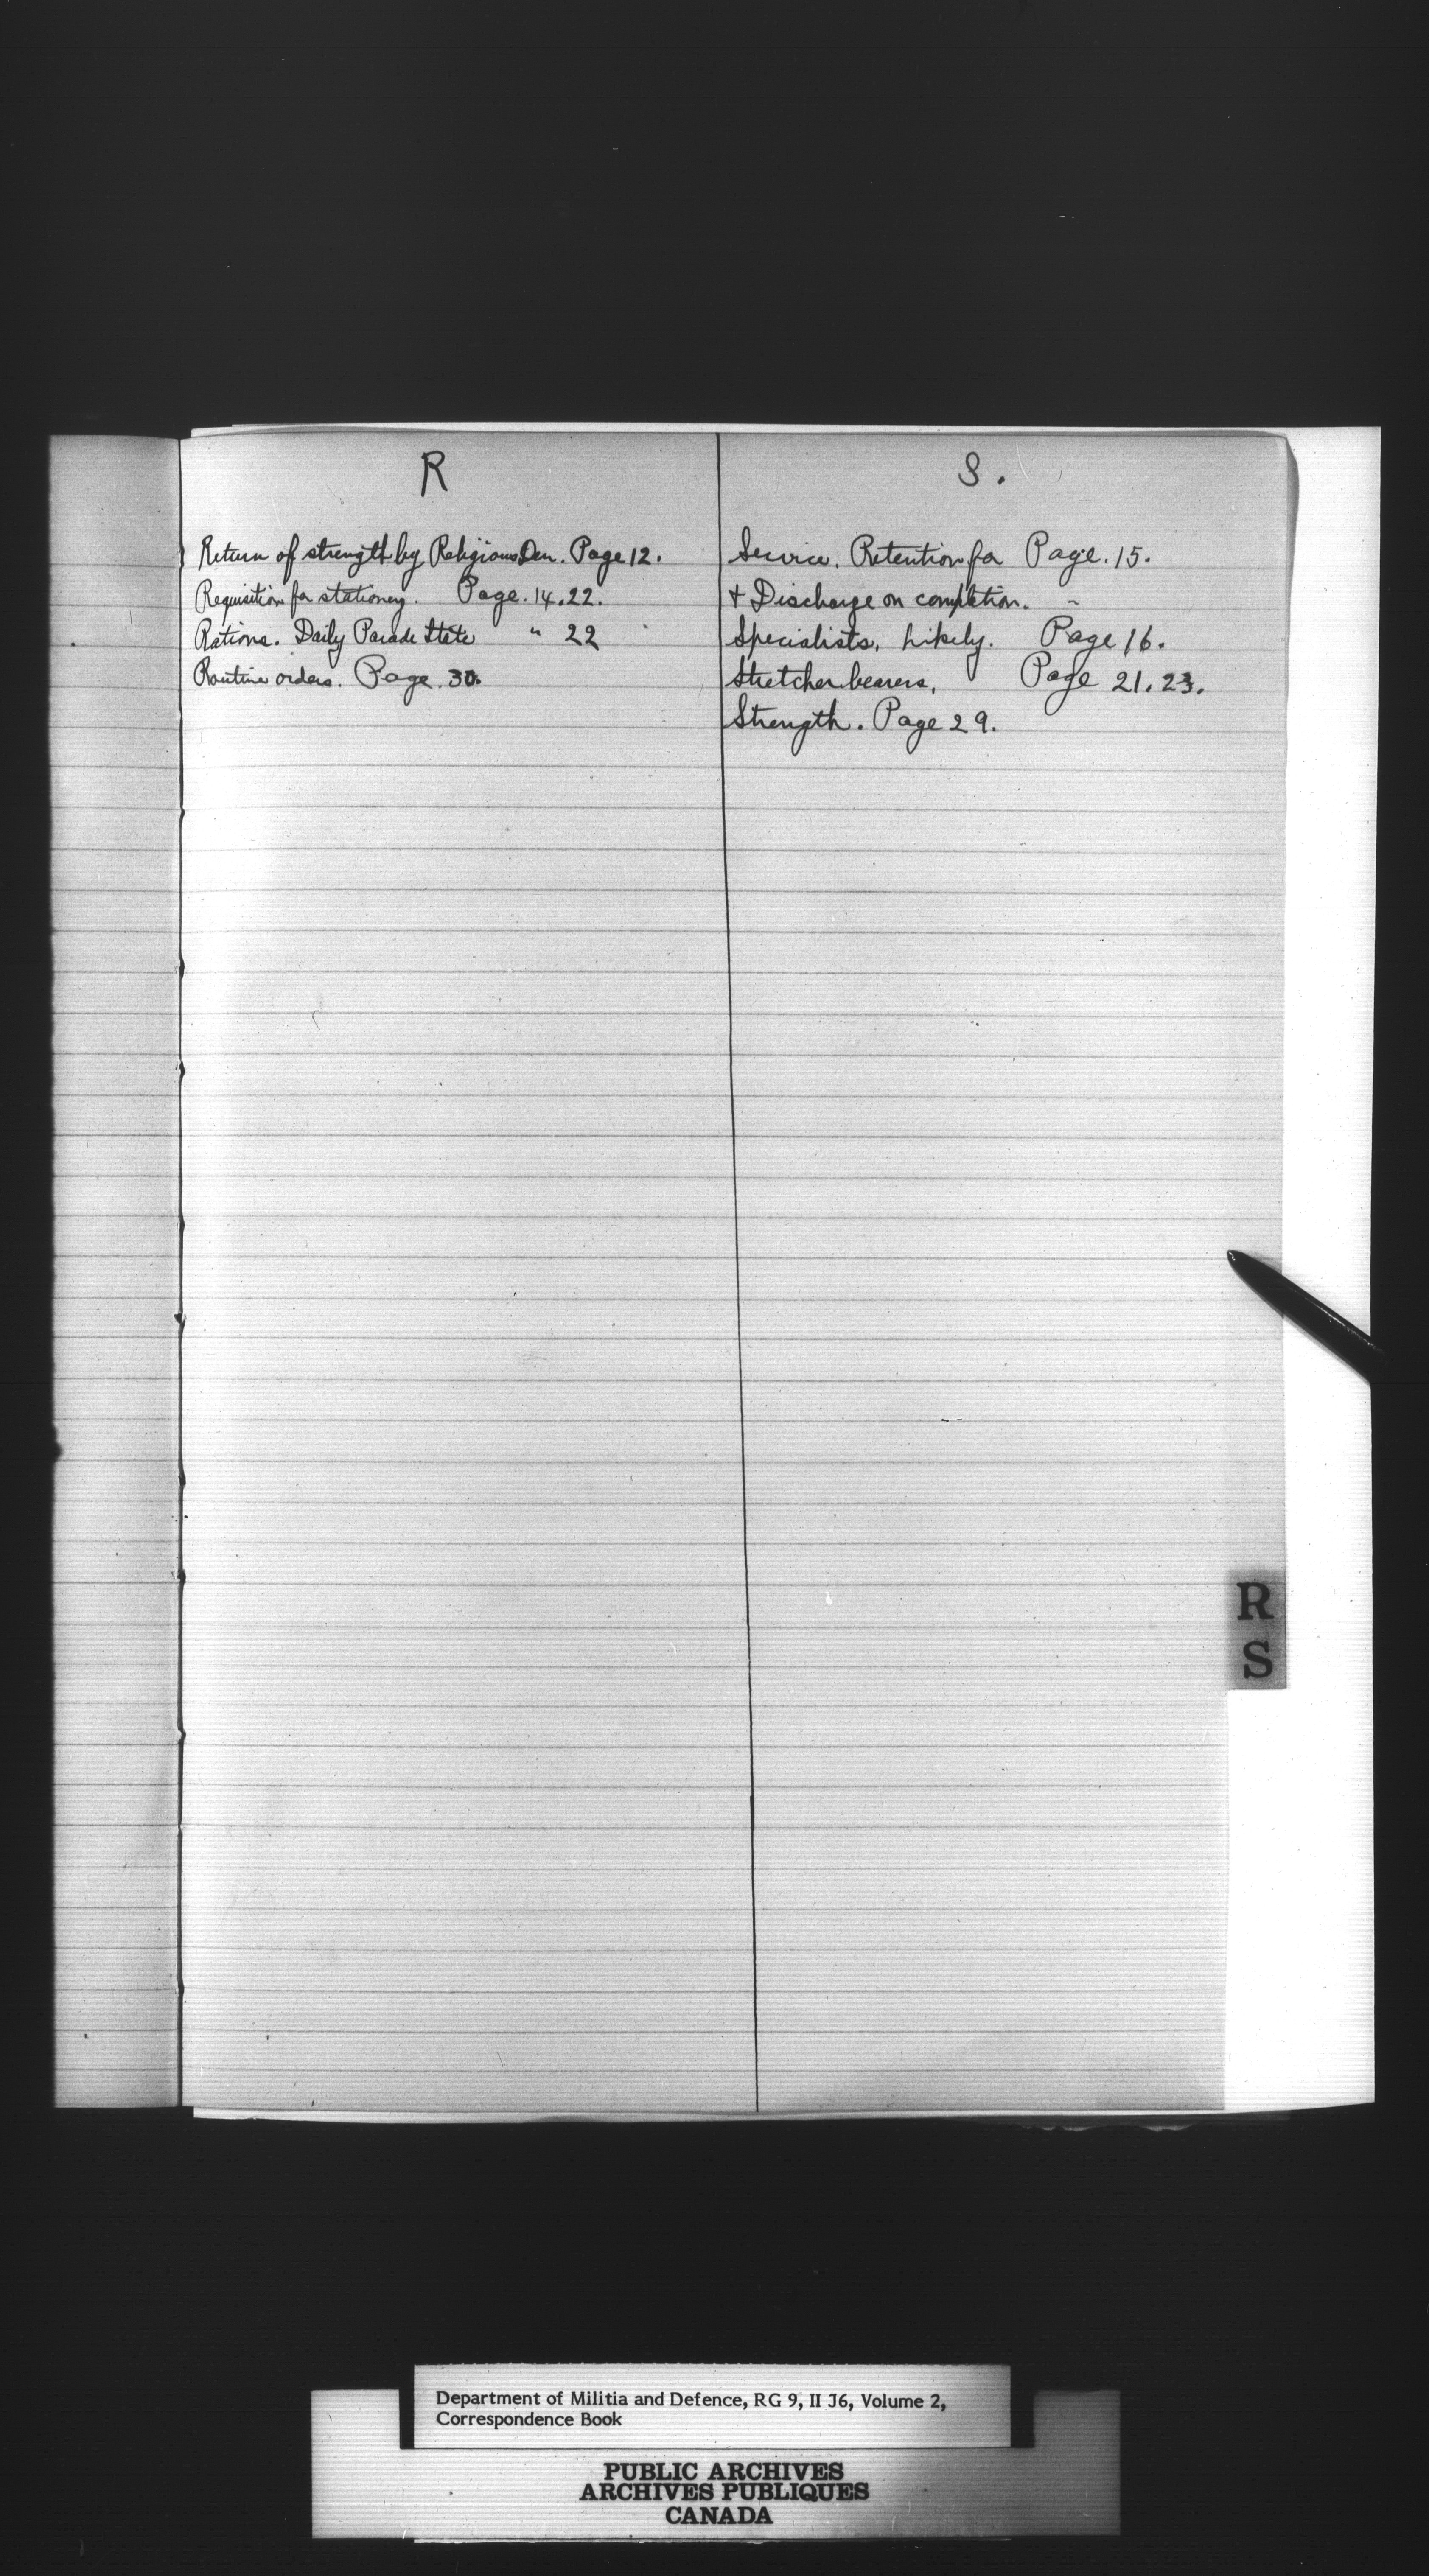 R
Return of strength by Religious Den. Page 12.
Requisition for stationery. Page. 14.22.
Rations. Daily Parade State " 22
Routine orders. Page. 30.
S.
Service. Retention for Page. 15.
+ Discharge on completion. "
Specialists, Likely. Page 16.
Stretcher bearers, Page 21. 23.
Strength. Page 29.
R
S
Department of Militia and Defence, RG 9, II J6, Volume 2,
Correspondence Book
PUBLIC ARCHIVES
ARCHIVES PUBLIQUES
CANADA